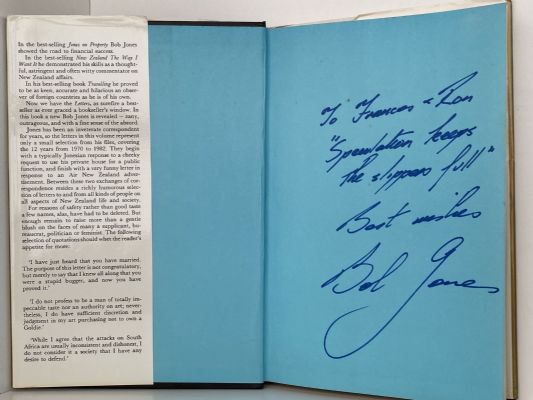 In the best-selling Jones on Property Bob Jones
showed the road to financial success.
In the best-selling New Zealand The Way I
Want It he demonstrated his skills as a thought-
ful, astringent and often witty commentator on
New Zealand affairs.
In his best-selling book Travelling he proved
to be as keen, accurate and hilarious an obser-
ver of foreign countries as he is of his own.
Now we have the Letters, as surefire a best-
seller as ever graced a bookseller's window. In
this book a new Bob Jones is revealed – zany,
outrageous, and with a fine sense of the absurd.
Jones has been an inveterate correspondent
for years, so the letters in this volume represent
only a small selection from his files, covering
the 12 years from 1970 to 1982. They begin
with a typically Jonesian response to a cheeky
request to use his private house for a public
function, and finish with a very funny letter in
response to an Air New Zealand adver-
tisement. Between these two exchanges of cor-
respondence resides a richly humorous selec-
tion of letters to and from all kinds of people on
all aspects of New Zealand life and society.
For reasons of safety rather than good taste
a few names, alas, have had to be deleted. But
enough remain to raise more than a gentle
blush on the faces of many a supplicant, bu-
reaucrat, politician or feminist. The following
selection of quotations should whet the reader's
appetite for more:
'I have just heard that you have married.
The purpose of this letter is not congratulatory,
but merely to say that I knew all along that you
were a stupid bugger, and now you have
proved it.'
'I do not profess to be a man of totally im-
peccable taste nor an authority on art; never-
theless, I do have sufficient discretion and
judgement in my art purchasing not to own a
Goldie.'
'While I agree that the attacks on South
Africa are usually inconsistent and dishonest, I
do not consider it a society that I have any
desire to defend.'
To Frances & Ron
"Speculation keeps
the slippers full"
Best wishes
Bob Jones